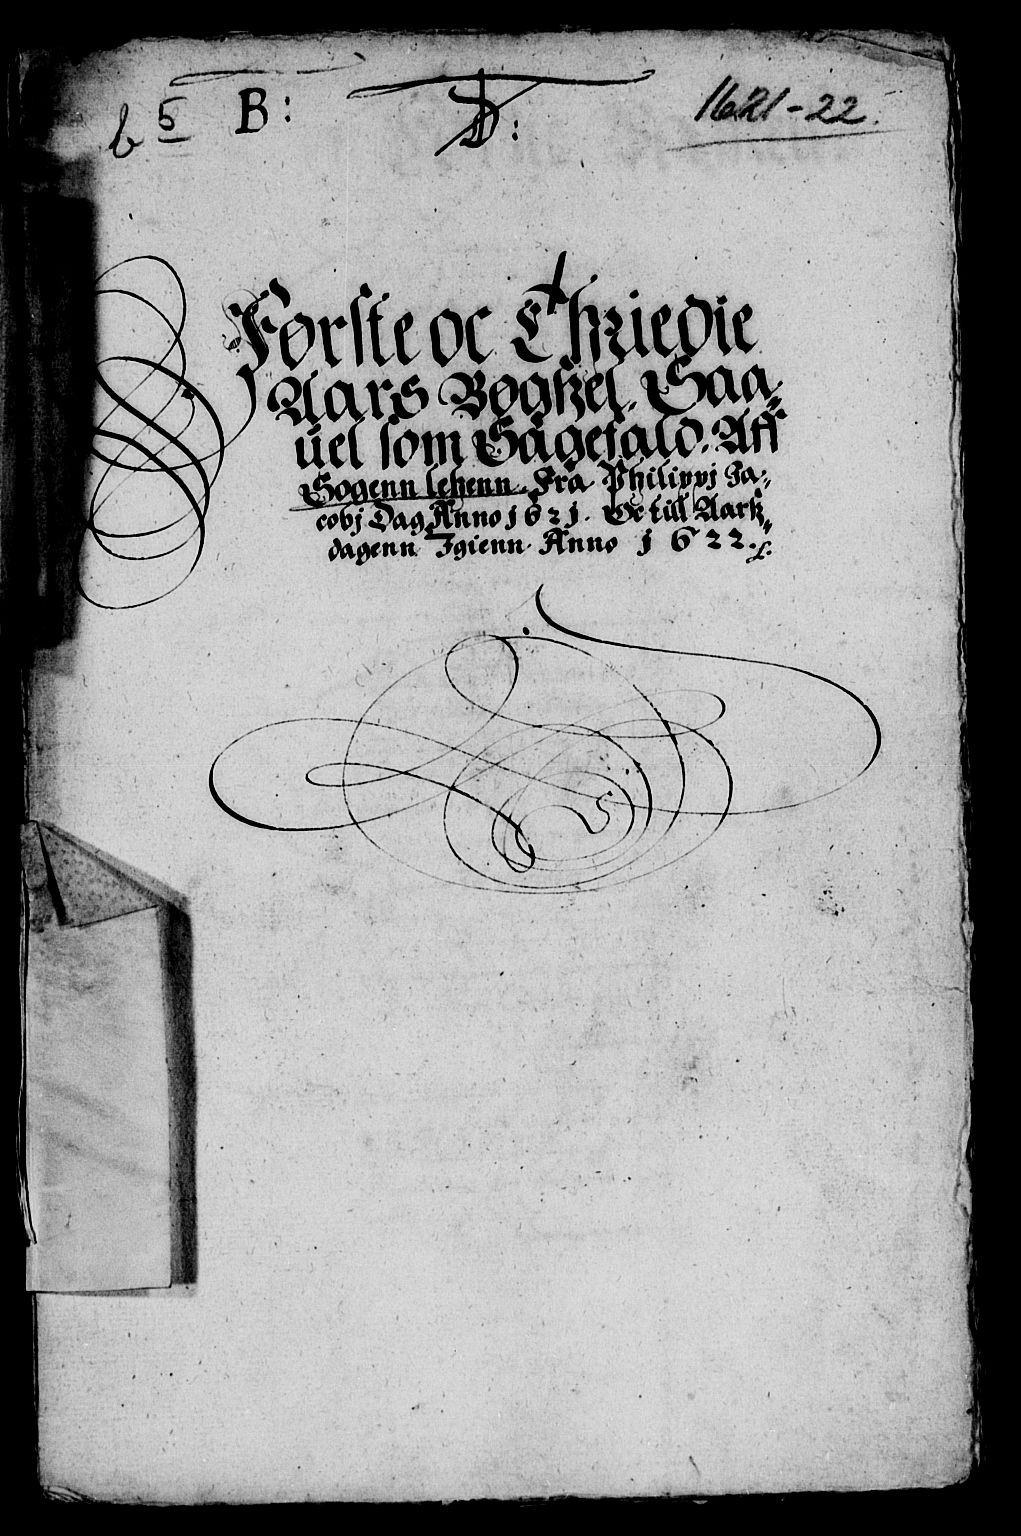 b 5 B: D:
1621-22.
Første oc Thriedie
Aars Bøgszel, Saa¬
uel som Sagefald. Aff
Sogenn lehenn. Fra Philippj Ja¬
cobj Dag Anno 1621. Oc till Aarsz¬
dagenn Igienn Anno 1622.